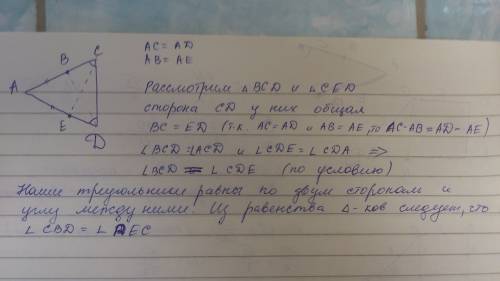 C
B
A
E
D
AC = AD
AB = AE
Рассмотрим △BCD и △CED
сторона CD у них общая
BC = ED (т.к. AC=AD и AB=AE, то AC-AB=AD-AE)
∠BCD=∠ACD и ∠CDE=∠CDA ⇒
∠BCD = ∠CDE (по условию)
Наши треугольники равны по двум сторонам и
углу между ними. Из равенства △-ков следует, что
∠CBD = ∠DEC